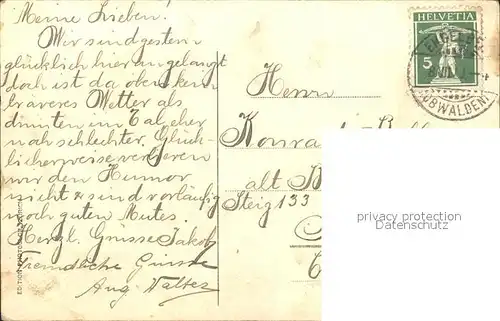 Meine Lieben!
Wir sind gestern
glücklich hier angelangt
doch ist da oben kein
braveres Wetter als
drunten im Tal, eher
noch schlechter. Glück-
licherweise verlieren
wir den Humor
nicht & sind vorläufig
noch guten Mutes.
Herzl. Grüsse Jakob
Freundliche Grüsse
Aug. Walter
Herrn
Konrad
alt
Steig 133
HELVETIA
5
(OBWALDEN)
privacy protection
Datenschutz
EDITION PHOTOGLOB